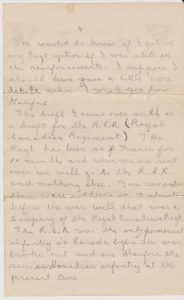 9
You wanted to know if I got in
any Regt yet or if I was still in
the reinforcements. I suppose I
should have gave a little more
detail when I wrote you from
Halifax
The draft I came over with is
a draft for the R.C.R. (Royal
Canadian Regiment) The
Regt has been in France for
10 months and when we are sent
over we will go to the R.C.R
and nothing else. You remember
there were soldiers in
before the war well that was a
company of the Royal Canadian Regt
The R.C.R. was the only permanent
infantry in Canada before the war
broke out and are therefore the
senior Canadian infantry at the
present time